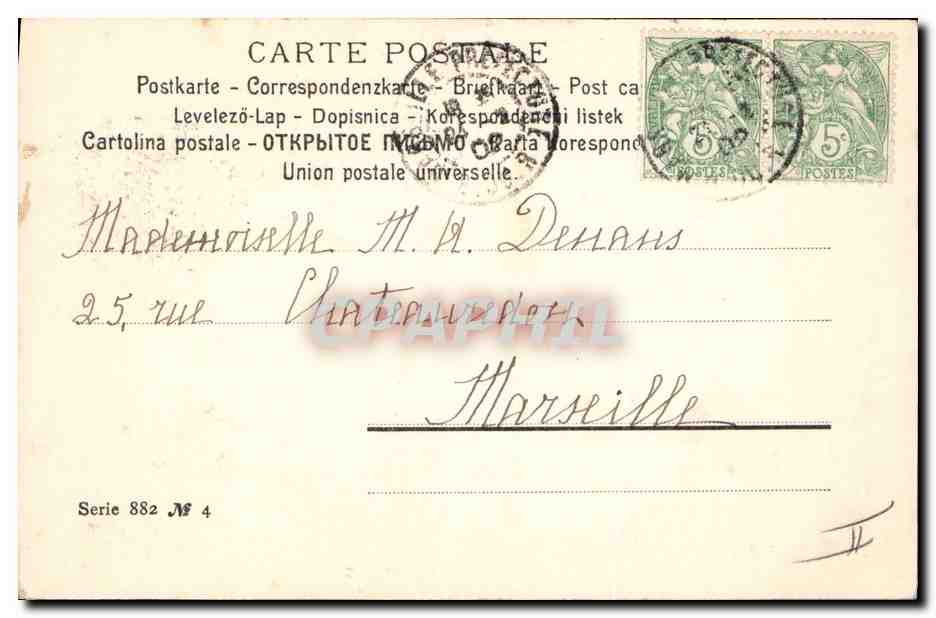 CARTE POSTALE
Postkarte - Correspondenzkarte - Briefkaart - Post ca
Levelező-Lap - Dopisnica - Korespondenční listek
Cartolina postale - ОТКРЫТОЕ ПИСЬМО - Karta korespond
Union postale universelle.
5c
POSTES
5c
POSTES
Mademoiselle M. A. Denans
25, rue Chateauredon
CPAPHIL
Marseille
Serie 882 № 4
II